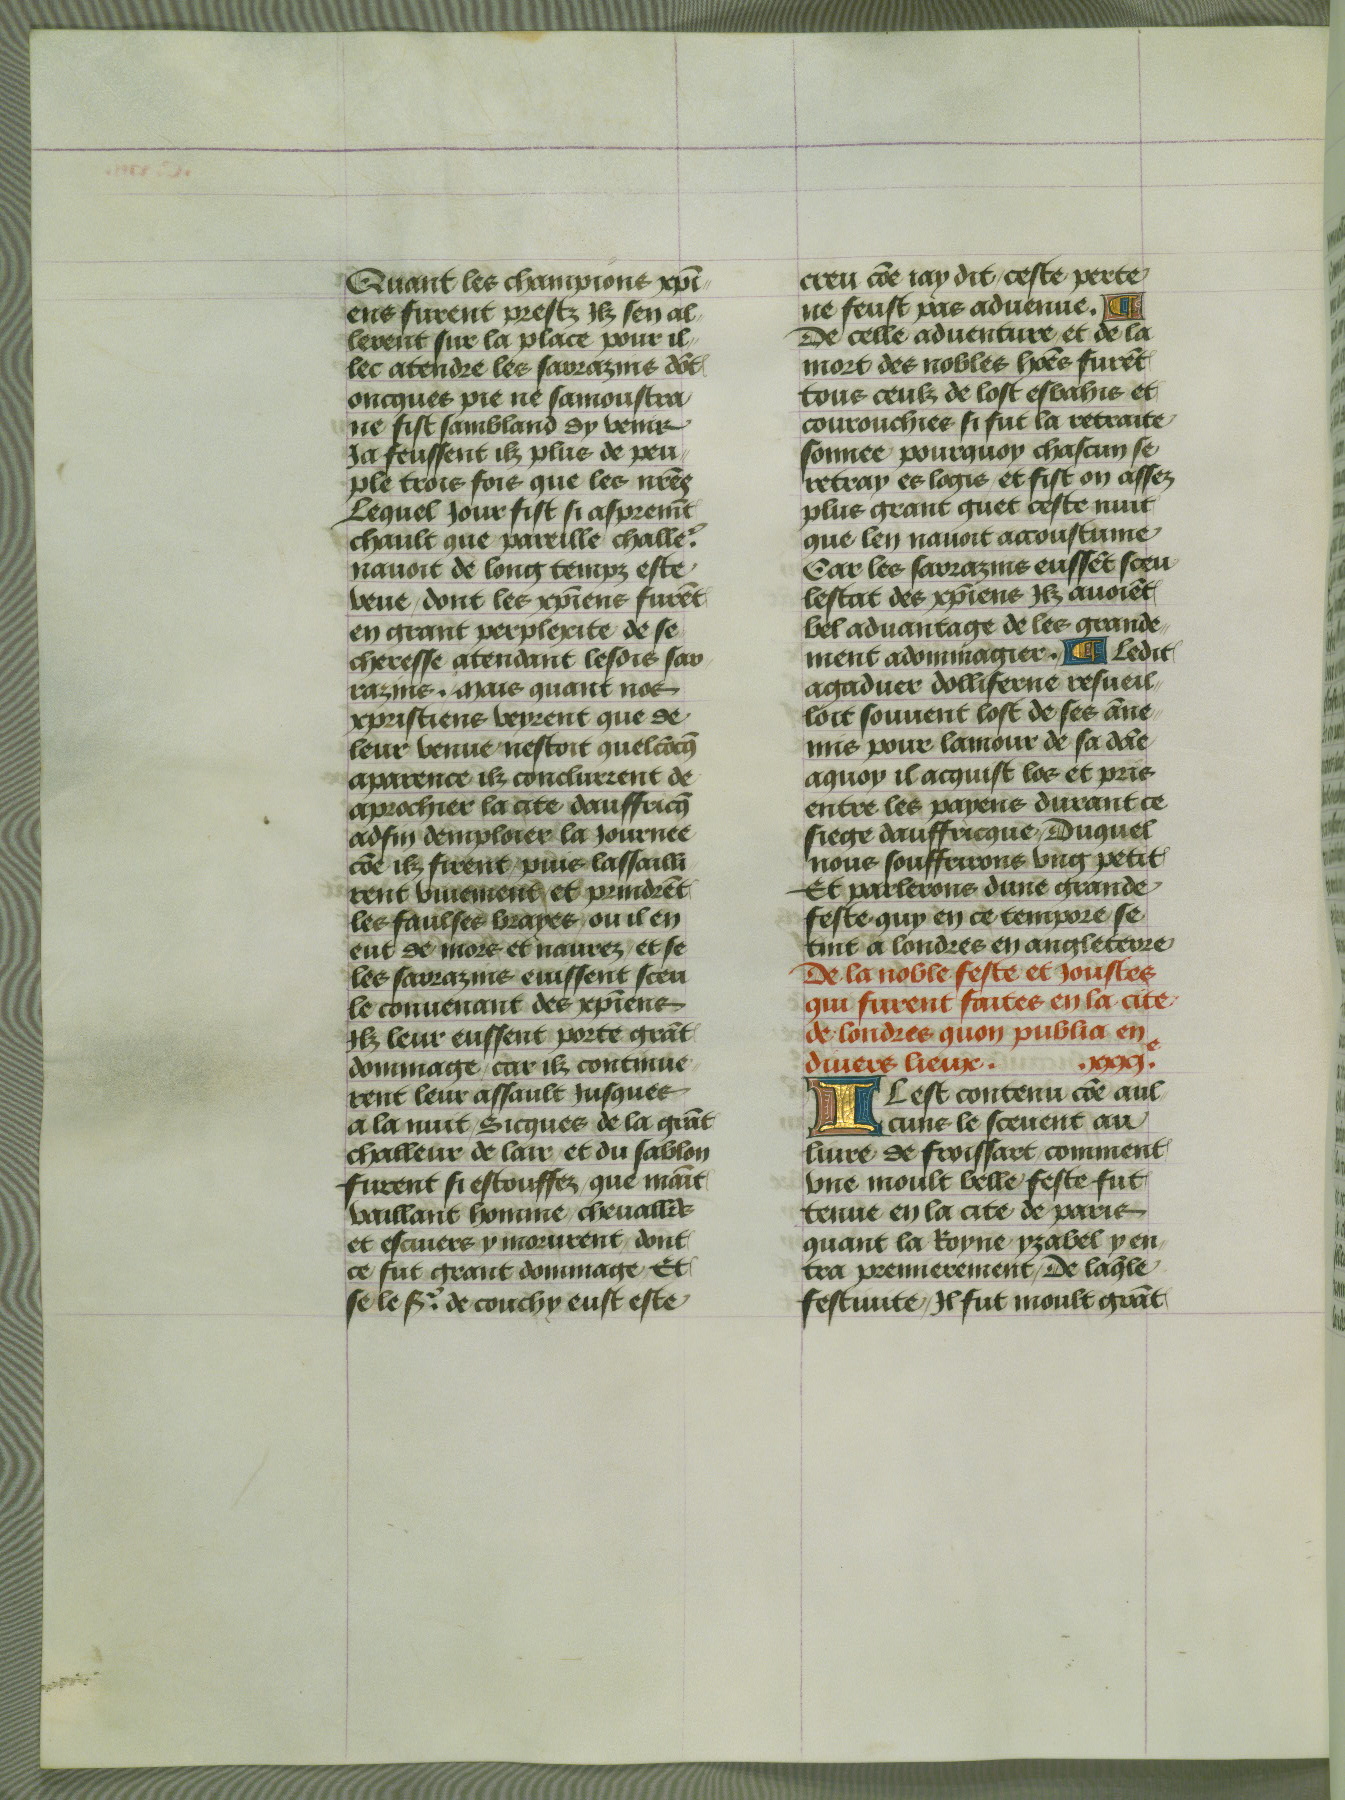 Quant les champions xp̄i-
ens furent prestz Ilz sen al-
lerent sur la place pour il-
lec atendre les sarrazins dōt
oncques pie ne samonstra
ne fist sambland dy venir
Ja feussent ilz plus de peu-
ple trois fois que les nr̄es
Lequel Jour fist si aspremt̄
chault que pareille challeʳ.
nauoit de long tempz este
veue / dont les xp̄iens furēt
en grant perplexite de se-
cheresse atendant lesdis sar-
razins. Mais quant nos
xpristiens veyrent que de
leur venue nestoit quelcōcq̄
aparence ilz conclurrent de
aprochier la cite dauffricq̄
adfin demploier la Journee
cōe ilz firent / puis lassailli-
rent viuement / et prindrēt
les faulses brayes / ou il en
eut de mors et naurez / et se
les sarrazins euissent sceu
le conuenant des xp̄iens
Ilz leur eussent porte grāt
dommage / car ilz continue-
rent leur assault Jusques
a la nuit / Sicques de la grāt
challeur de lair / et du sablon
furent si estouffez / que māit
vaillant homme / cheuallr̄s
et escuiers y morurent / dont
ce fut grant dommage / Et
se le sʳ. de couchy eust este
creu cōe iay dit / ceste perte
ne feust pas aduenue. ¶
De celle aduenture et de la
mort des nobles hōes furēt
tous ceulz de lost esbahis et
courouchies si fut la retraite
sonnee pourquoy chascun se
retray es logis / et fist on assez
plus grant guet ceste nuit
que len nauoit acoustume
Car les sarrazins eussēt sceu
lestat des xp̄iens Ilz auoiēt
bel aduantage de les grande-
ment adommagier. ¶ Ledit
agaduer dolliferne resueil-
loit souuent lost de ses āne-
mis pour lamour de sa dāe
aquoy il acquist los et pris
entre les payens durant ce
siege dauffricque / Duquel
nous souffrirons vng petit
Et parlerons dune grande
feste quy en ce tempore se
tint a londres en angleterre
De la noble feste et Joustes
qui furent faites en la cite
de londres quon publia en
diuers lieux. .xxxj.ᵉ
IL est contenu cōe aul-
cuns le sceuent au
liure de froissart comment
vne moult belle feste fut
tenue en la cite de paris
quant la Royne yzabel y en-
tra premierement / De laq̄le
festiuite / Il fut moult grāt